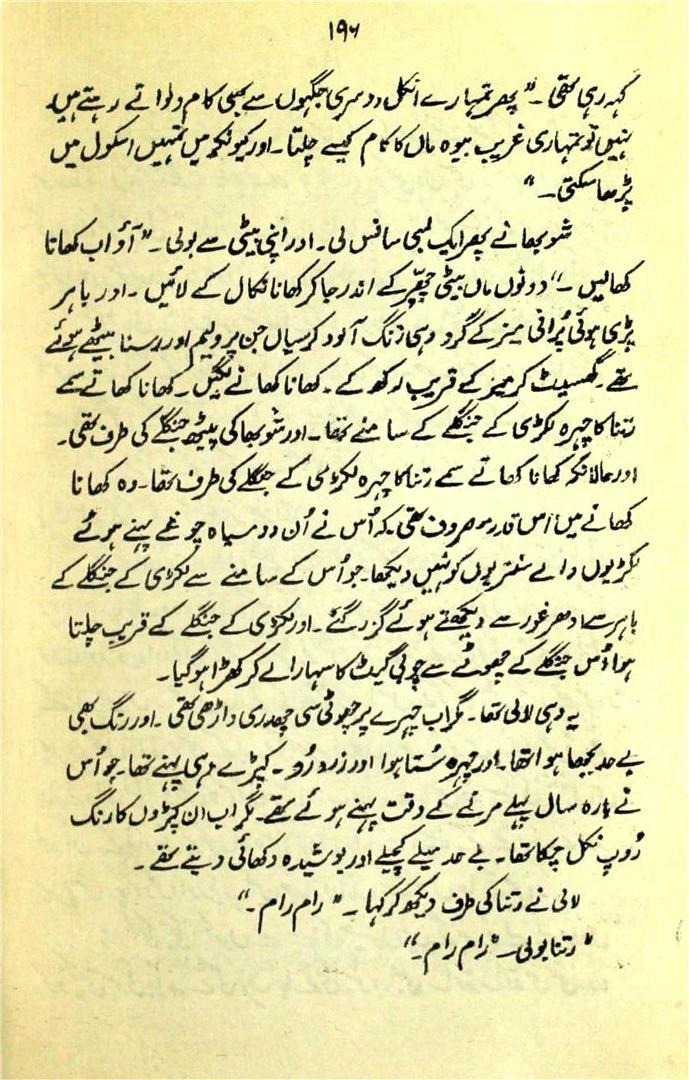 ۱۹۶
کہہ رہی تھی۔ ”پھر تمہارے انکل دوسری جگہوں سے بھی کام دلواتے رہتے ہیں
نہیں تو تمہاری غریب بیوہ ماں کا کام کیسے چلتا۔ اور کیونکر میں تمہیں اسکول میں
پڑھا سکتی۔“
شوبھا نے پھر ایک لمبی سانس لی۔ اور اپنی بیٹی سے بولی۔ ”آؤ اب کھانا
کھالیں۔“ دونوں ماں بیٹی چھپّر کے اندر جا کر کھانا نکال کے لائیں۔ اور باہر
پڑی ہوئی پُرانی میز کے گرد وہی زنگ آلود کرسیاں جن پر ولیم اور رسنا بیٹھے ہوئے
تھے۔ گھسیٹ کر میز کے قریب رکھ کے۔ کھانا کھانے لگیں۔ کھانا کھاتے سمے
رتنا کا چہرہ لکڑی کے جنگلے کے سامنے تھا۔ اور شوبھا کی پیٹھ جنگلے کی طرف تھی۔
اور حالانکہ کھانا کھاتے سمے رتنا کا چہرہ لکڑی کے جنگلے کی طرف تھا۔ وہ کھانا
کھانے میں اس قدر مصروف تھی۔ کہ اُس نے اُن دو سیاہ چوغے پہنے ہوئے
لکڑیوں والے سنتریوں کو نہیں دیکھا۔ جو اُس کے سامنے سے لکڑی کے جنگلے کے
باہر سے ادھر غور سے دیکھتے ہوئے گزر گئے۔ اور لکڑی کے جنگلے کے قریب چلتا
ہوا اُس جنگلے کے چھوٹے سے چوبی گیٹ کا سہارا لے کر کھڑا ہو گیا۔
یہ وہی لالی تھا۔ مگر اب چہرے پر چھوٹی سی چھدری داڑھی تھی۔ اور رنگ بھی
بے حد بجھا ہوا تھا۔ اور چہرہ سُتا ہوا اور زرد رُو۔ کپڑے وہی پہنے تھا۔ جو اُس
نے بارہ سال پہلے مرنے کے وقت پہنے ہوئے تھے۔ مگر اب ان کپڑوں کا رنگ
رُوپ نکل چکا تھا۔ بے حد میلے کچیلے اور بوشیدہ دکھائی دیتے تھے۔
لالی نے رتنا کی طرف دیکھ کر کہا۔ ”رام رام۔“
”رتنا بولی۔ ”رام رام۔“